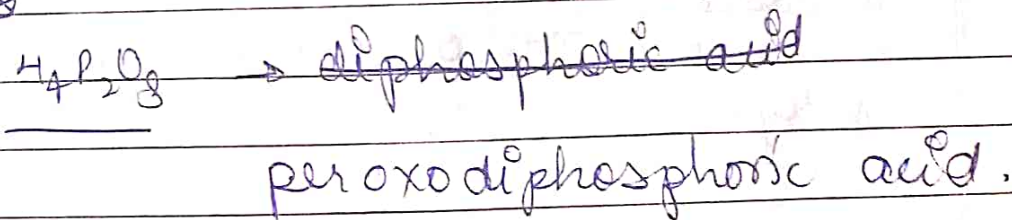 H₄P₂O₈ → diphosphoric acid
peroxodiphosphoric acid.